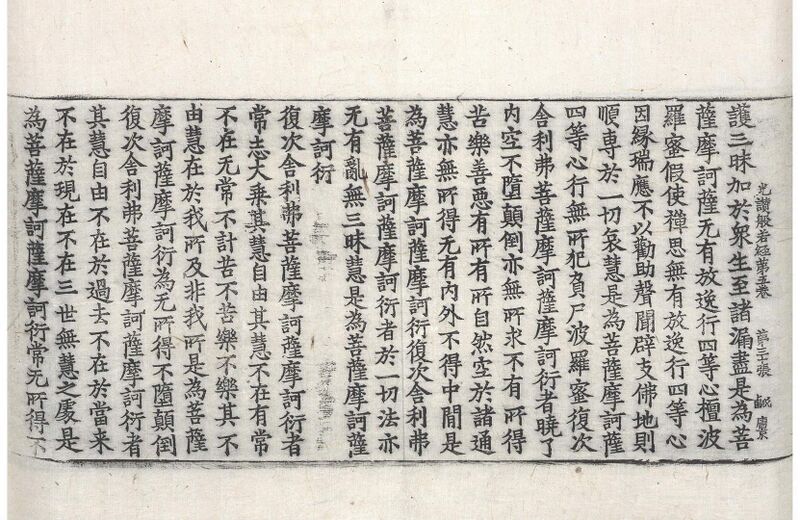 光讃般若經第五卷 第三張 鹹
護三昧加於衆生至諸漏盡是為菩
薩摩訶薩无有放逸行四等心檀波
羅蜜假使禪思無有放逸行四等心
因縁瑞應不以勸助聲聞辟支佛地則
順専於一切哀慧是為菩薩摩訶薩
四等心行無所犯負尸波羅蜜復次
舍利弗菩薩摩訶薩摩訶衍者曉了
内空不墮顛倒亦無所求不有所得
苦樂善惡有所有所自然空於諸通
慧亦無所得无有内外不得中間是
為菩薩摩訶薩摩訶衍復次舍利弗
菩薩摩訶薩摩訶衍者於一切法亦
无有亂無三昧慧是為菩薩摩訶薩
摩訶衍
復次舍利弗菩薩摩訶薩摩訶衍者
常志大乗其慧自由其慧不在有常
不在无常不計苦不苦樂不樂其不
由慧在於我所及非我所是為菩薩
摩訶薩摩訶衍為无所得不墮顛倒
復次舍利弗菩薩摩訶薩摩訶衍者
其慧自由不在於過去不在於當来
不在於現在不在三世無慧之處是
為菩薩摩訶薩摩訶衍常无所得不